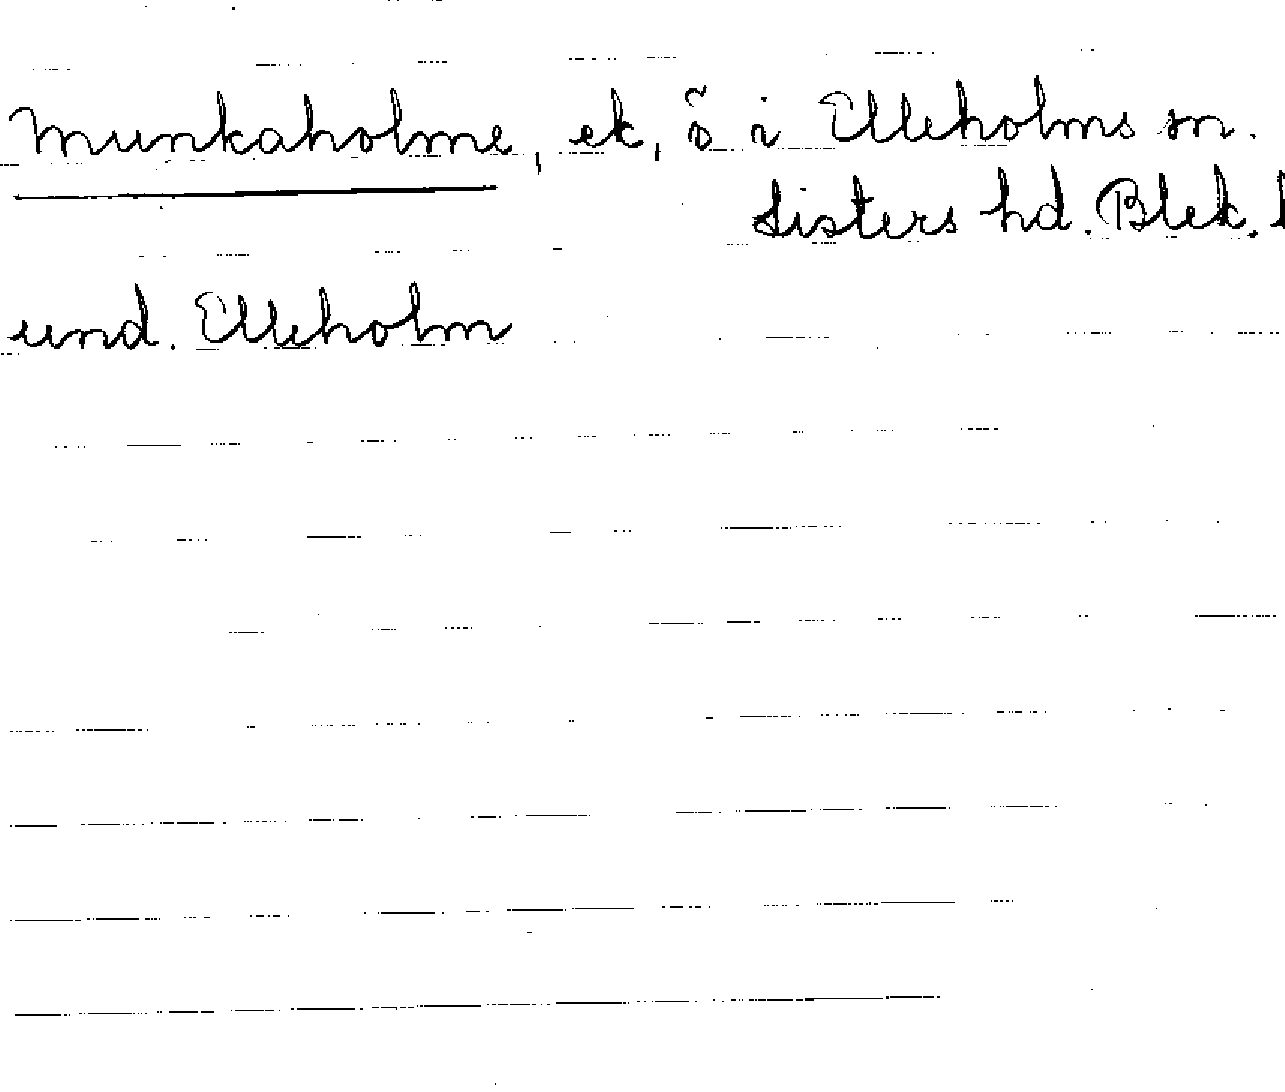 Munkaholme, ek, ö i Elleholms sn.
Listers hd. Blek. l
und. Elleholm